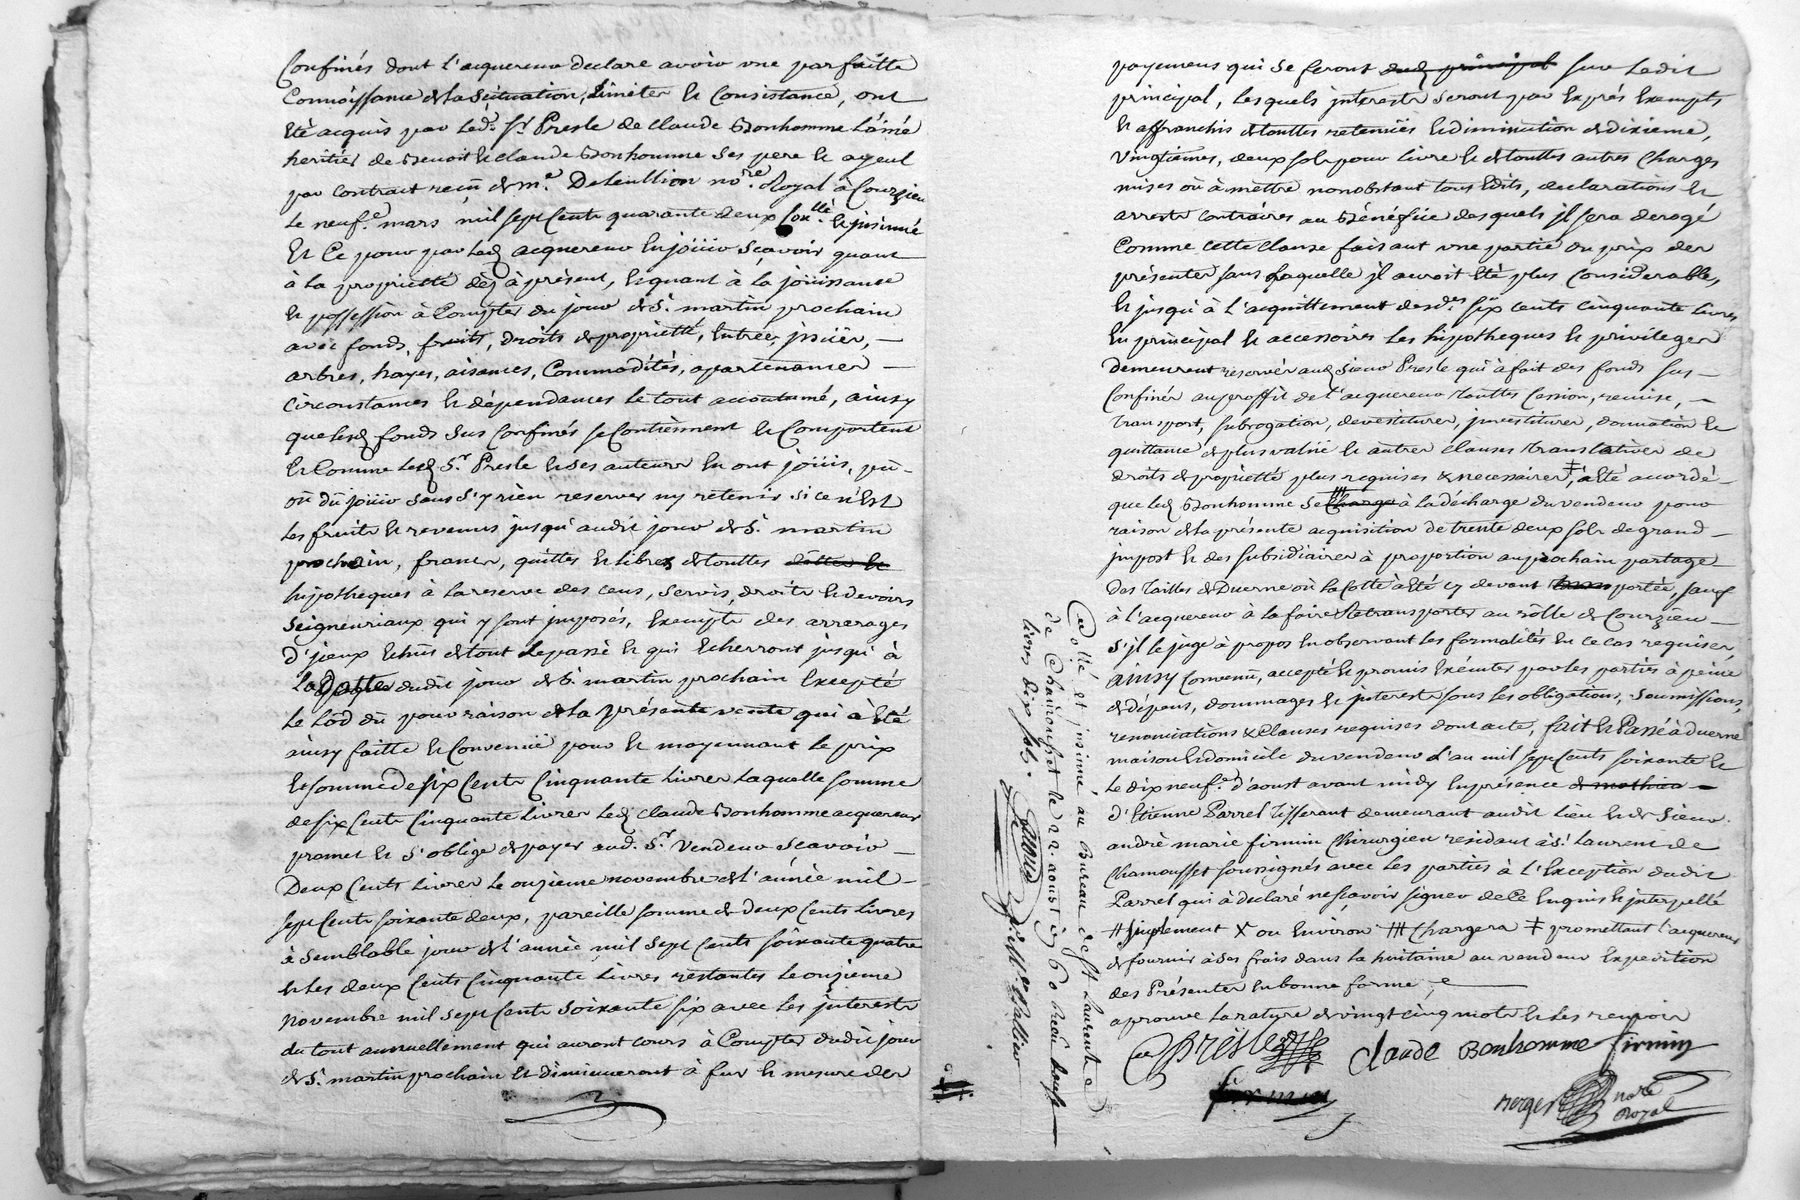 Confinés dont l'acquereur declare avoir une parfaitte
Connoissance de la scituation, Limites et Consistance, ont
Eté acquis par led. Sr Presle de Claude Bonhomme L'ainé
heritier de Benoit et Claude Bonhomme ses pere et ayeul
par contract reçu de me. Deleullion nore. Royal à Courzieu
le neufe. mars mil sept Cents quarante deux Conllé et insinué
Et Ce pour par Led acquereur En joüir sçavoir quant
à la proprietté dèz à présent, et quant à la joüissance
et possession à Compter du jour de St. martin prochain
avec fonds, fruits, droits de proprietté, Entrées, issües,
arbres, hayes, aisances, Commodités, apartenances
Circonstances et dépendances le tout accoutumé, ainsy
que lesd fonds sus Confinés se Contiennent et Comportent
et Comme Led Sr. Presle et ses auteurs en ont joüis, pû
où dû joüir sans s'y rien reserver ny retenir si ce n'Est
Les fruits et revenus jusqu'audit jour de St. martin
prochain, francs, quittes et libres de touttes dettes et
hipotheques à la reserve des Cens, servis, droits et devoirs
seigneuriaux qui y sont imposés, Exempts des arrerages
d'iceux Echûs de tout le passé et qui Echerront jusqu'à
La Datte dudit jour de St. martin prochain Excepté
Le Lod dû pour raison de la présente vente qui à Eté
ainsy faitte et Convenüe pour et moyennant le prix
et somme de six Cents Cinquante Livres Laquelle somme
de six Cents Cinquante Livres led Claude Bonhomme acquereur
promet et s'oblige de payer aud. Sr. Vendeur sçavoir
Deux Cents Livres le onzieme novembre de l'année mil
sept Cents soixante deux, pareille somme de deux Cents Livres
à semblable jour de l'année mil sept Cents soixante quatre
et Les deux Cents Cinquante Livres restantes le onzieme
novembre mil sept Cents soixante six avec Les interests
du tout annuellement qui auront cours à Compter dudit jour
de St. martin prochain et diminueront à fur et mesure des
payemens qui se feront dud principal sur Ledit
principal, Lesquels interests seront par Exprés Exempts
et affranchis de touttes retenuës et diminution de dixieme,
vingtiemes, deux sols pour livre et de touttes autres Charges
mises où à mettre nonobstant tous Edits, declarations et
arrests contraires au Bénéfice desquels il sera derogé
Comme cette clause faisant une partie du prix des
présentes sans Laquelle il auroit Eté plus Considerable,
et jusqu'à l'acquittement desdes six cents cinquante livres
En principal et accessoires Les hipotheques et privileges
demeurent reservés aud Sieur Presle qui à fait des fonds sus
Confinés au proffit de l'acquereur touttes Cession, remise,
transport, subrogation, devestiture, investiture, donation et
quittance de plus valüe et autres clauses translatives de
droits de proprietté plus requises & necessaires ǂ, à Eté accordé
que led Bonhomme se Charge à la décharge du vendeur pour
raison de la présente acquisition de trente deux sols de grand
impost et des subsidiaires à proportion au prochain partage
Des Tailles de Duerne où la Cotte à Eté cy devant portée, sauf
à l'acquereur à la faire transporter au rôlle de Courzieu
s'il le juge à propos En observant les formalités En ce Cas requises,
ainsy Convenu, accepté et promis Exécuter par les parties à peine
de dépens, dommages et interests sous les obligations, soumissions,
renonciations & Clauses requises dont acte, fait et Passé à Duerne
maison et domicile du vendeur L'an mil sept Cents soixante et
Le dix neufe. d'aoust avant midy En présence de mathieu
d'Etienne Parrel Tisserant demeurant audit Lieu et de Sieur
andré marie firmin Chirurgien residant à St. Laurent de
Chamousset soussignés avec Les parties à l'Exception dudit
Parrel qui à declaré ne sçavoir signer de Ce Enquis et interpellé
# simplement X ou Environ ⧻ Chargera ǂ promettant l'acquereur
de fournir à ses frais dans la huitaine au vendeur Expedition
des Présentes En bonne forme,
aprouvé La rature de vingt cinq mots et Les renvois
Presle Claude Bonhomme firmin
firmin
Berger nore
Royal
Collé et insinué au Bureau de St Laurent
de Chamousset le 22. aoust 1760 reçu
livres dix sols